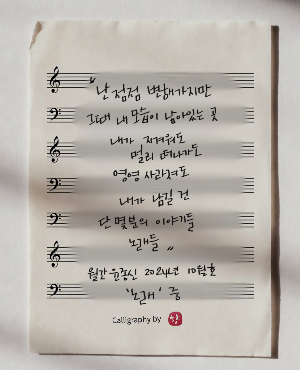 "난 점점 변해가지만
그때 내 모습이 남아있는 곳
내가 지겨워도
멀리 떠나가도
영영 사라져도
내가 남길 건
단 몇분의 이야기들
노래들"
월간 윤종신 2024년 10월호
'노래' 중
Calligraphy by